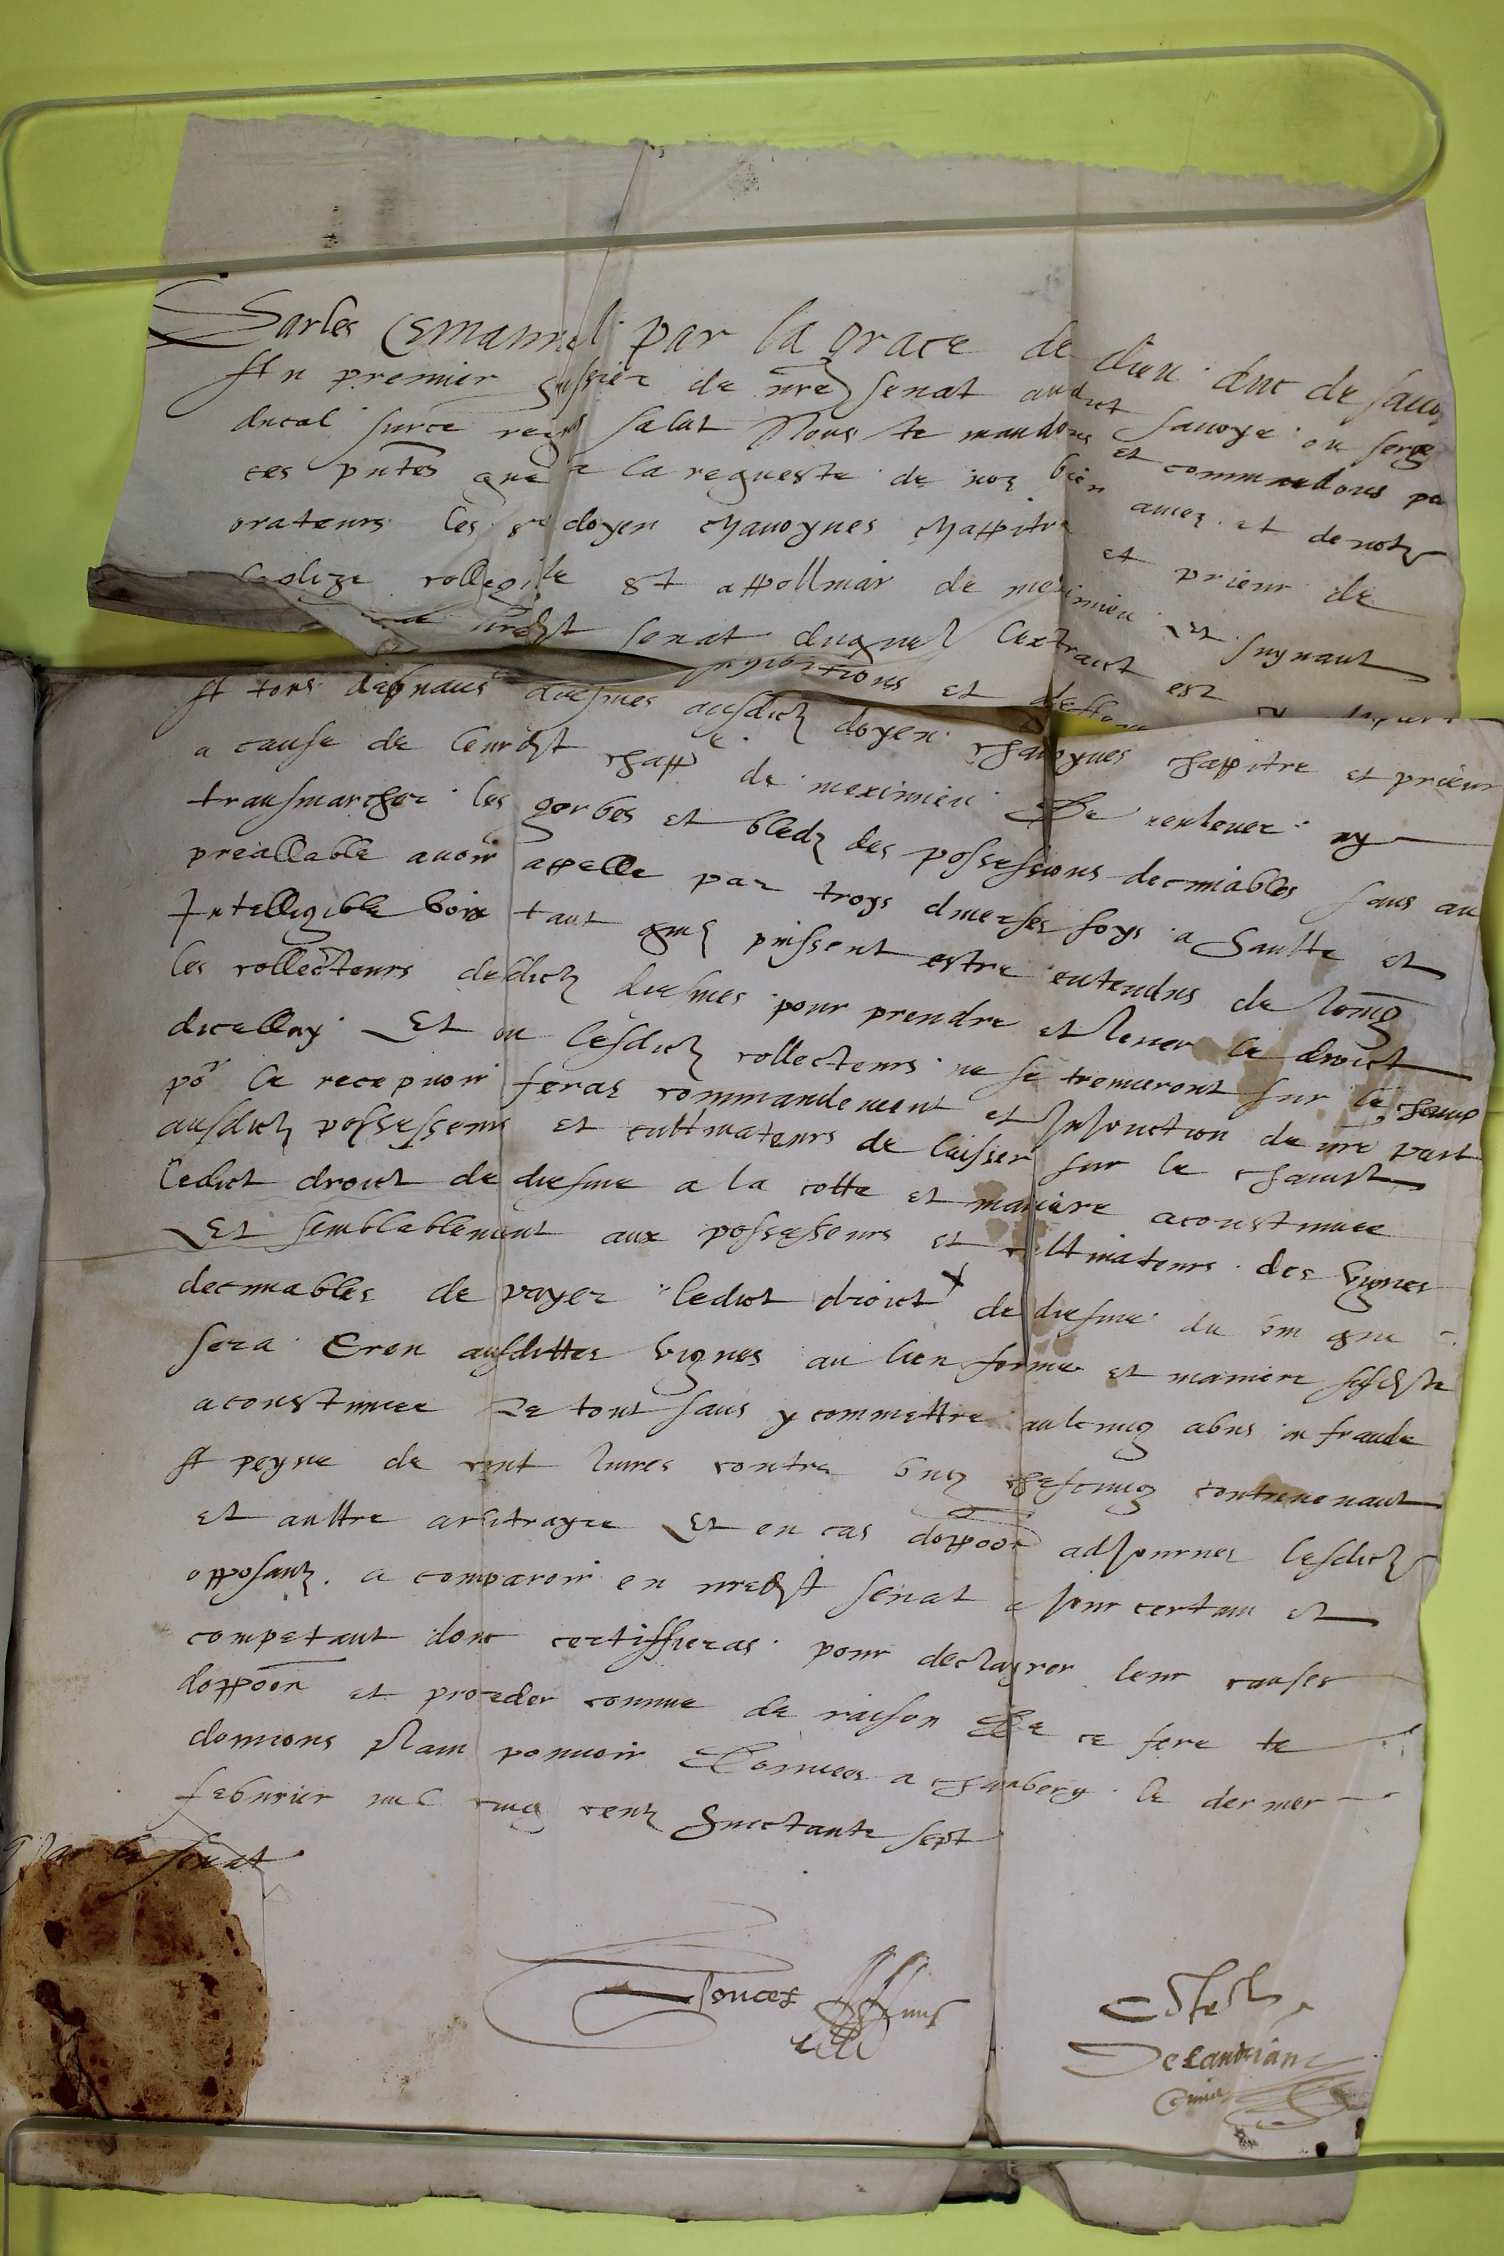 Charles Emanuel par la grace de dieu duc de savoy
Au premier hussier de nre senat audict savoye ou serge
ducal surce requis salut Nous te mandons et commandons pa
ces pntes que a la requeste de noz bien amez et devotz
orateurs les srs doyen chanoynes chappitre et prieur de
leglize collegiale St appollinair de meximieu Et suyvant
nredist senat duquel lextraict est cy
inhibitions et deffen
A tous debvans diesmes ausdictz doyen chanoynes chappitre et prieur
a cause de leurdst chappe de meximieu De nenlever ny
transmarcher les gerbes et bledz des possessions decimables sans au
preallable avoir appelle par troys diverses foys a haulte et
Intelligible voix tant quilz puissent estre entendus de loing
les collecteurs desdictz diesmes pour prendre et lever le droict
dicelluy Et ou lesdictz collecteurs ne se treuveront sur le champ
por le recepvoir feras commandement et Injonction de nre part
ausdictz possesseurs et cultivateurs de laisser sur le champt
ledict droict de diesme a la cotte et maniere acoustumee
Et semblablement aux possesseurs et cultivateurs des vignes
decimables de payer ledict droict de diesme du vin que
sera Creu ausdittes vignes au lieu forme et maniere susdste
acoustumee Le tout sans y commettre aulcung abus ou fraude
A peyne de cent livres contre ung chescung contrevenant
et aultre arbitrayre Et en cas doppoon adjournes lesdictz
opposantz a comparoir en nredst senat a jour certain et
competant dont certiffieras pour declayrer leur causes
doppoon et proceder comme de raison De ce fere te
donnons plain pouvoir Donnees a chambery le dernier
febvrier mil cinq centz huictante sept
Par le senat
Poncet